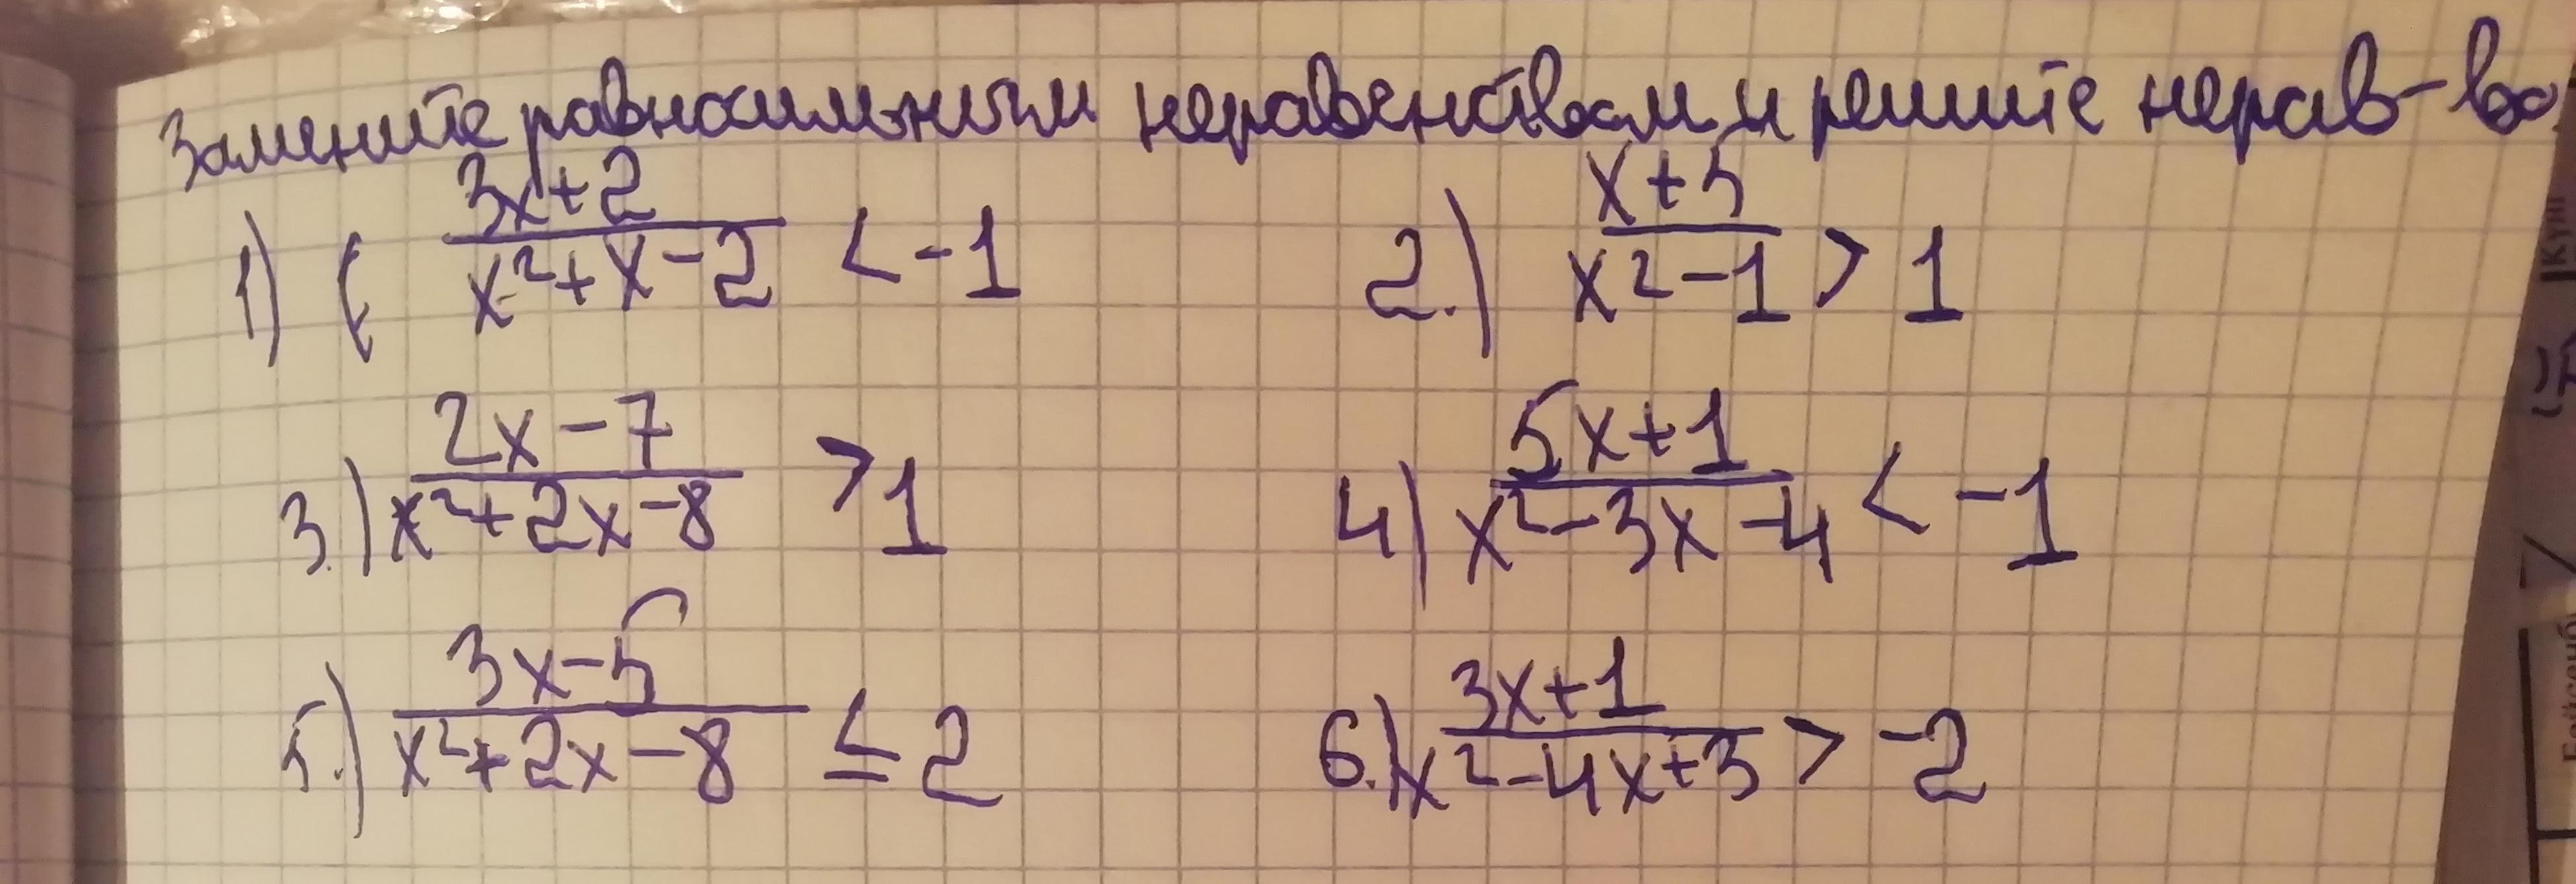 Замените равносильным неравенством и решите нерав-во
1) ( (3x+2)/(x²+x-2) < -1
2.) (x+5)/(x²-1) > 1
3.) (2x-7)/(x²+2x-8) > 1
4) (5x+1)/(x²-3x-4) < -1
5.) (3x-5)/(x²+2x-8) ≤ 2
6.) (3x+1)/(x²-4x+3) > -2